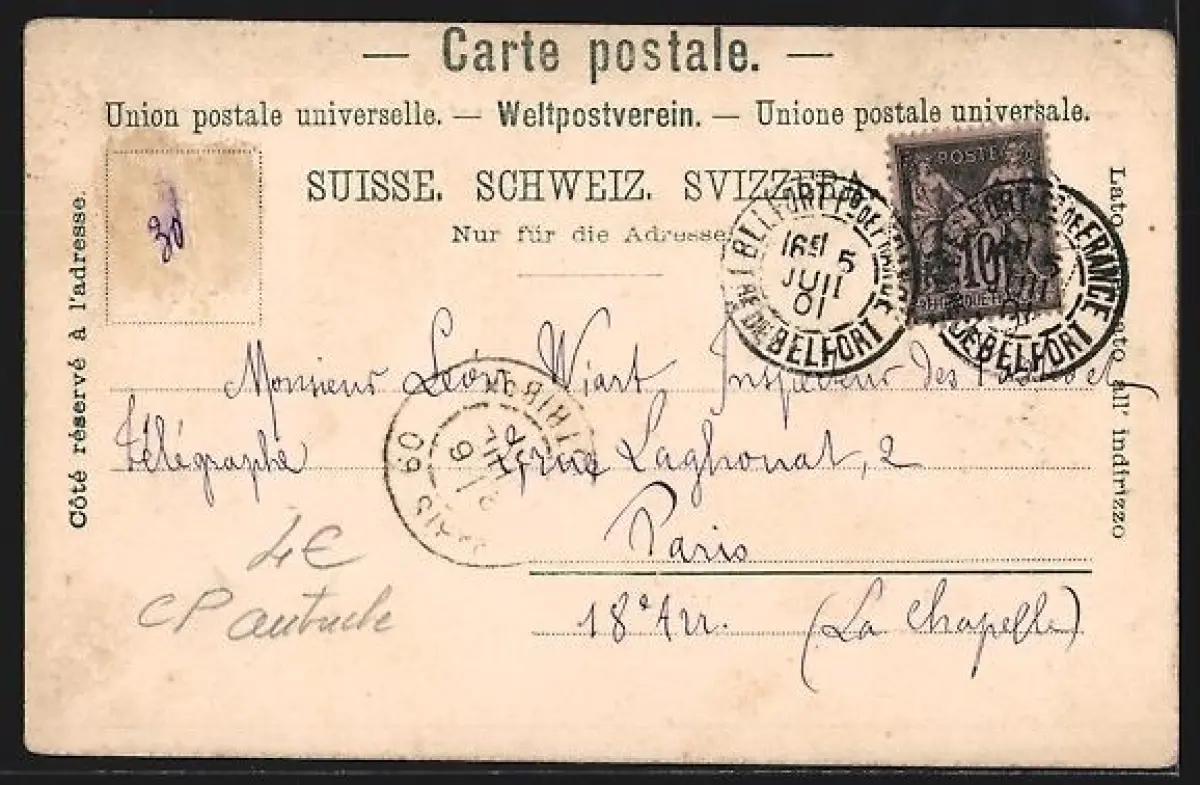 — Carte postale. —
Union postale universelle. — Weltpostverein. — Unione postale universale.
SUISSE. SCHWEIZ. SVIZZERA.
Nur für die Adresse
Côté réservé à l'adresse.
Lato all' indirizzo
30
POSTE
10
BELFORT
16 5
JUIL
01
BELFORT
FRANCE
BELFORT
PARIS 60
6
Monsieur Léon Wiart, Inspecteur des Postes et
Télégraphe 2, rue Laghouat, 2
Paris
18e Arr. (La Chapelle)
4€
CP autruche